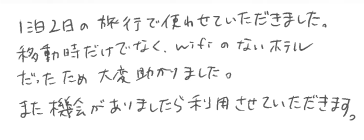 1泊2日の旅行で使わせていただきました。
移動時だけでなく、wifiのないホテル
だったため大変助かりました。
また機会がありましたら利用させていただきます。